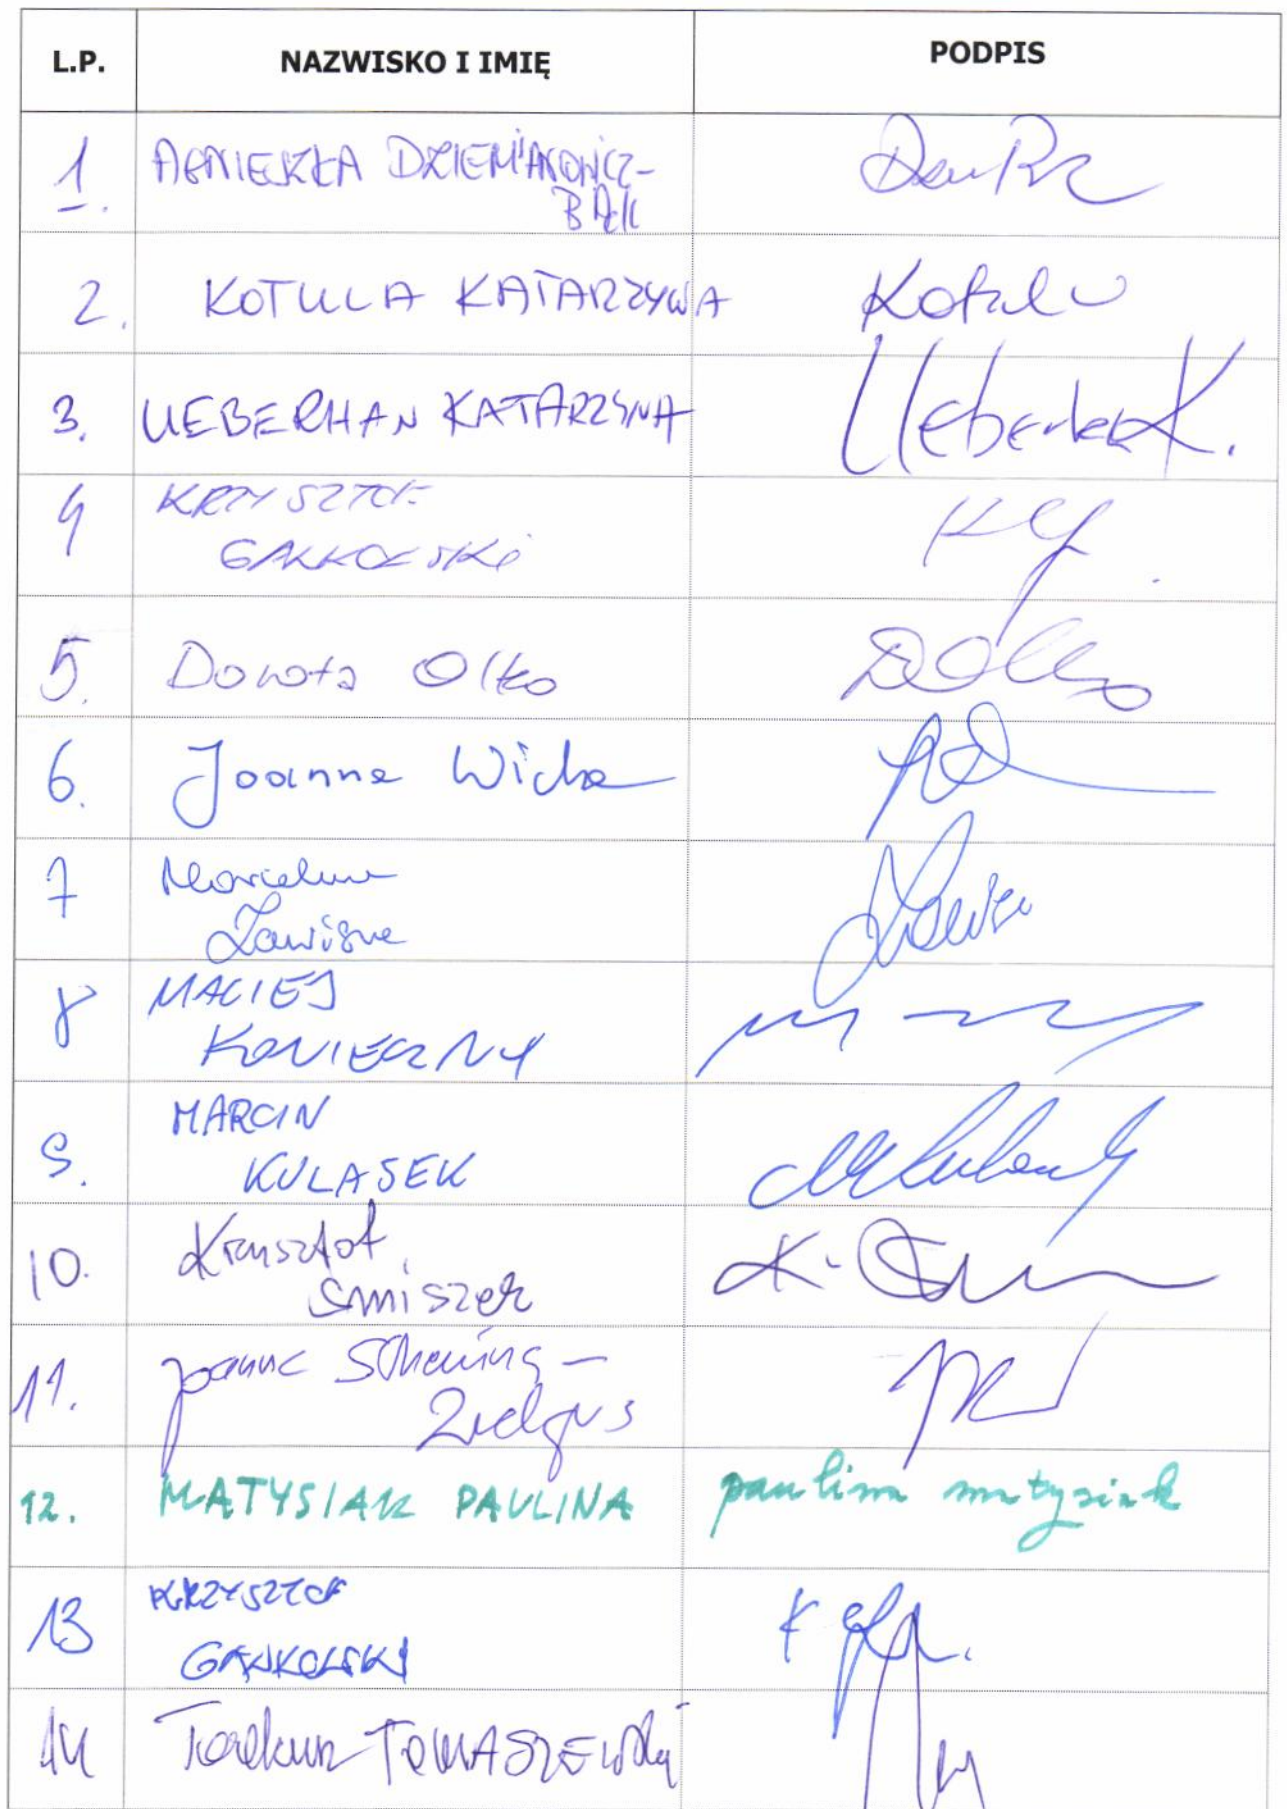 L.P. NAZWISKO I IMIĘ PODPIS
1. AGNIESZKA DZIEMIANOWICZ-
BĄK
2. KOTULA KATARZYNA Kotula
3. UEBERHAN KATARZYNA Ueberhan K.
4 KRZYSZTOF
GAWKOWSKI
5. Dorota Olko
6. Joanna Wicha
7 Marcelina
Zawisza
8 MACIEJ
KONIECZNY
9. MARCIN
KULASEK
10. Krzysztof
Śmiszek
11. Joanna Scheuring-
Wielgus
12. MATYSIAK PAULINA paulina matysiak
13 KRZYSZTOF
GAWKOWSKI
14 Tadeusz TOMASZEWSKI